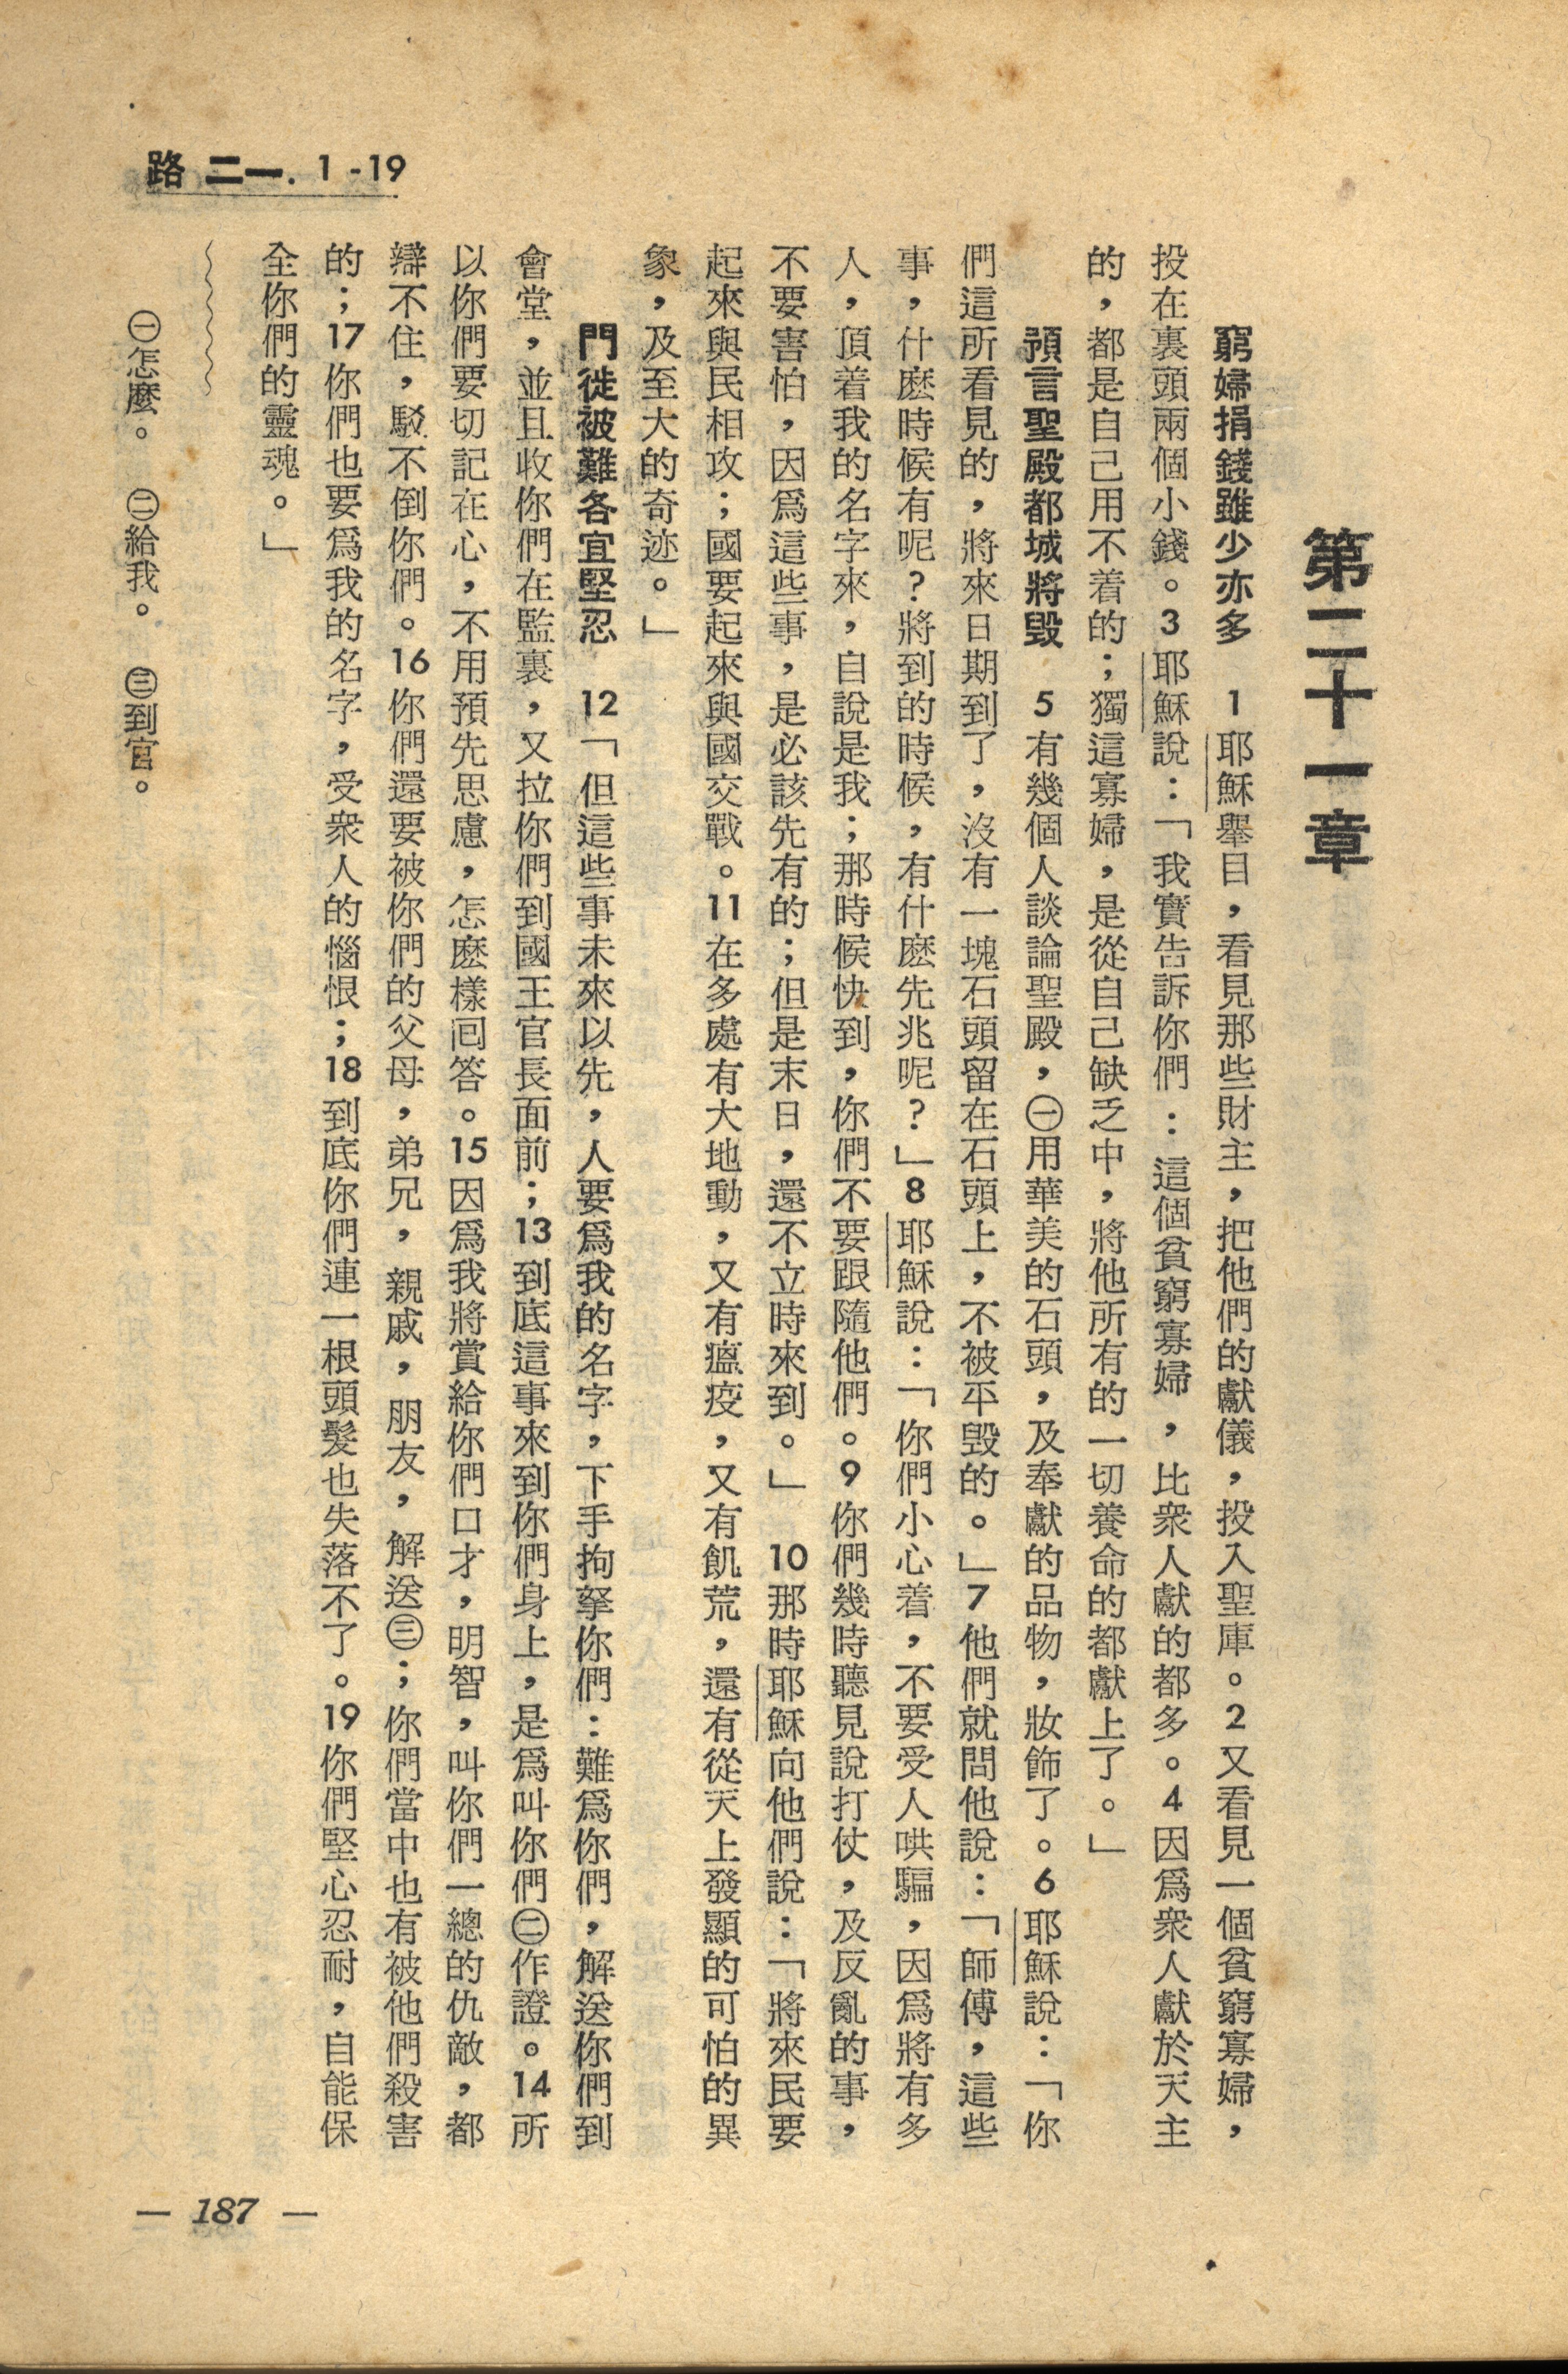 路 二一. 1 -19
第二十一章
窮婦捐錢雖少亦多　1耶穌舉目，看見那些財主，把他們的獻儀，投入聖庫。2又看見一個貧窮寡婦，
投在裏頭兩個小錢。3耶穌說：「我實告訴你們：這個貧窮寡婦，比衆人獻的都多。4因爲衆人獻於天主
的，都是自己用不着的；獨這寡婦，是從自己缺乏中，將他所有的一切養命的都獻上了。」
預言聖殿都城將毀　5有幾個人談論聖殿，㊀用華美的石頭，及奉獻的品物，妝飾了。6耶穌說：「你
們這所看見的，將來日期到了，沒有一塊石頭留在石頭上，不被平毀的。」7他們就問他說：「師傅，這些
事，什麽時候有呢？將到的時候，有什麽先兆呢？」8耶穌說：「你們小心着，不要受人哄騙，因爲將有多
人，頂着我的名字來，自說是我；那時候快到，你們不要跟隨他們。9你們幾時聽見說打仗，及反亂的事，
不要害怕，因爲這些事，是必該先有的；但是末日，還不立時來到。」　10那時耶穌向他們說：「將來民要
起來與民相攻；國要起來與國交戰。11在多處有大地動，又有瘟疫，又有飢荒，還有從天上發顯的可怕的異
象，及至大的奇迹。」
門徒被難各宜堅忍　12「但這些事未來以先，人要爲我的名字，下手拘拏你們：難爲你們，解送你們到
會堂，並且收你們在監裏，又拉你們到國王官長面前；13到底這事來到你們身上，是爲叫你們㊁作證。14所
以你們要切記在心，不用預先思慮，怎麽樣囘答。15因爲我將賞給你們口才，明智，叫你們一總的仇敵，都
辯不住，駁不倒你們。16你們還要被你們的父母，弟兄，親戚，朋友，解送㊂；你們當中也有被他們殺害
的；17你們也要爲我的名字，受衆人的惱恨；18到底你們連一根頭髮也失落不了。19你們堅心忍耐，自能保
全你們的靈魂。」
㊀怎麼。　㊁給我。　㊂到官。
— 187 —